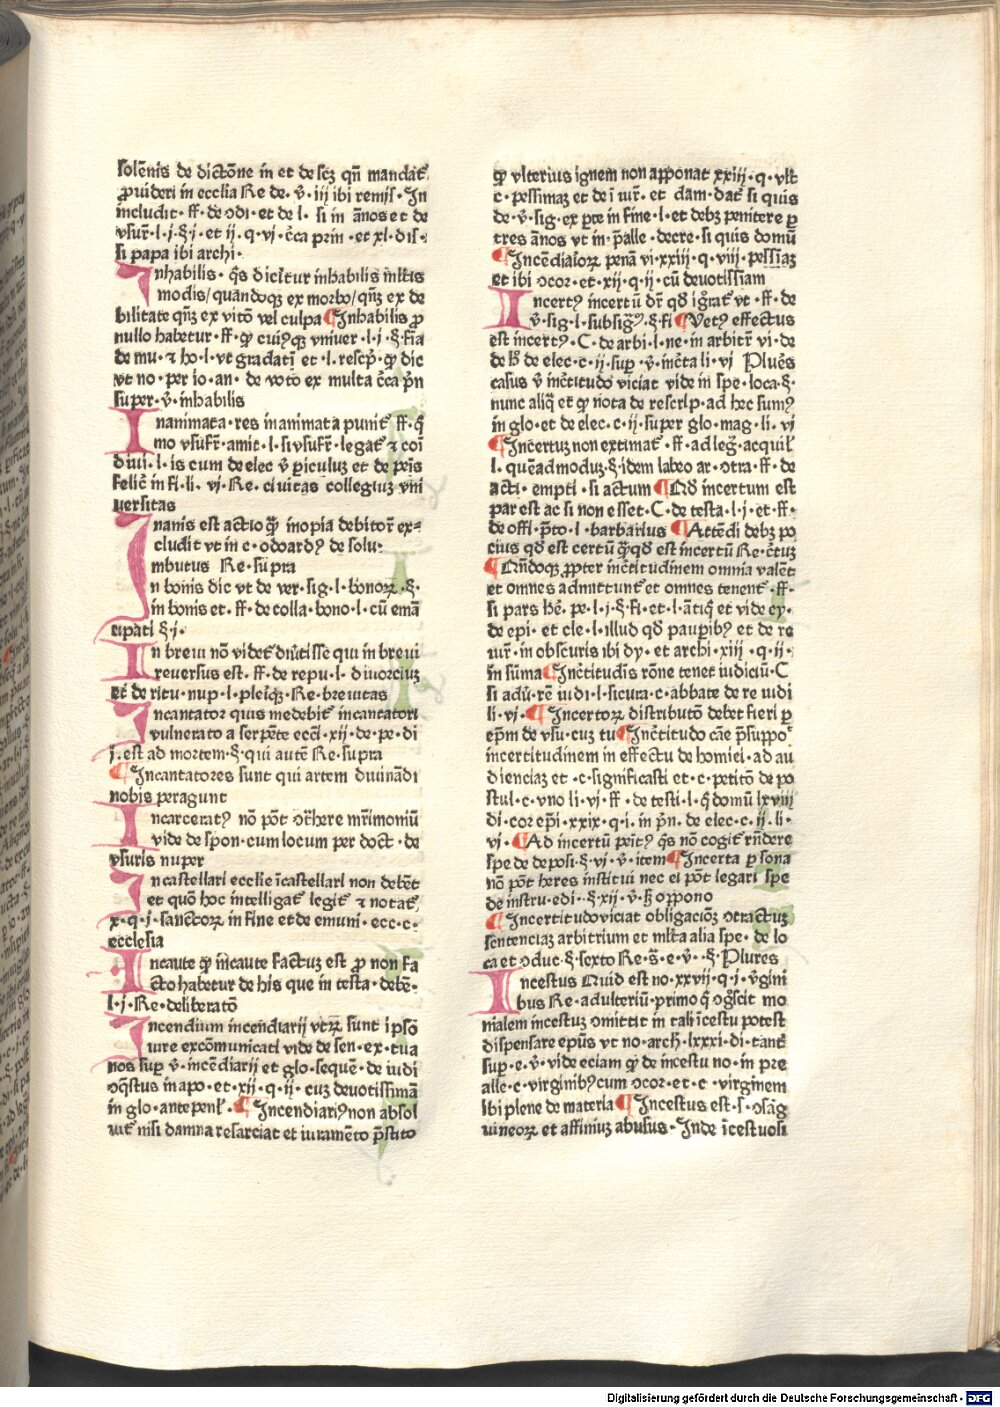 solēnis de dictōne in et de seꝫ qn̄ mandat᷑
ꝓuideri in ecclīa Re de · v̄ · iij ibi remis · In
includit · ff · de ↄdi · et de l · si in ānos et de
vsur̄ · l · j · §· j · et ij · q · vj · c̄ca prin · et xl · dis ·
si papa ibi archi ·
Inhabilis · q̄s dicitur inhabilis ml̄tis
modis / quandoqꝫ ex morbo / qn̄qꝫ ex de
bilitate qn̄qꝫ ex vitō vel culpa ¶ Inhabilis ꝓ
nullo habetur · ff · ꝙ cuiꝰqꝫ vniuer · l · j · § · fia
de mu · ⁊ ho · l · vt gradati et l · rescp̄ · ꝙ dic
vt no · per io · an · de voto ex multa c̄ca pn̄
super · v̄ · inhabilis
Inanimata · res inanimata punit᷑ ff · q̄
mo vsufr̄ · amit · l · si vsufr̄ · legat᷑ ⁊ coī
diui · l · is cum de elec v̄ ꝑiculuꝫ et de pen̄s
Felic̄ in fi · li · vj · Re · ciuitas collegiuꝫ vni
uersitas
Inanis est actio ꝙ̄ inopia debitor̄ ex
cludit vt in c · odoardꝰ de solu ·
mbutus Re · supra
In bonis dic vt de ver · sig · l · bonoꝝ · § ·
in bonis et · ff · de colla · bono · l · cū emā
cipati § · j ·
In breui nō videt᷑ diūtisse qui in breui
reuersus est · ff · de repu · l · diuorcius
et de ritu · nup · l · pleiqꝫ · Re · breuitas
Incantator quis medebit᷑ incantatori
vulnerato a serpēte ecci · xij · de · pe · di
j · est ad mortem · § · qui autē Re · supra
¶ Incantatores sunt qui artem diuinādi
nobis peragunt
Incarceratꝰ nō pōt ↄ̄here mr̄imoniū
vide de spon · cum locum per doct · de
vsuris nuper
In castellari ecclie īcastellari non debēt
et quō hoc intelligat᷑ legit᷑ ⁊ notat᷑
x · q · j · sanctoꝝ in fine et de emuni · ecc · c ·
ecclesia
Incaute ꝙ īncaute factuꝫ est ꝓ non fa
cto habetur de his que in testa · debē ·
l · j · Re · deliberatō
Incendium incendiarij vtꝝ sunt ipsō
iure excōmunicati vide de sen · ex · tua
nos sup̱ v̄ · incēdiarij et glo · sequē · de iudi
ↄq̄stus in apo · et · xij · q · ij · cuꝫ deuotissimā
in glo · ante penl̄ · ¶ Incendiariꝰ non absol
uit᷑ nisi damna resarciat et iuramēto p̄stito
ꝙ vlterius ignem non apponat xxiij · q · vlt
c · pessimaꝫ et de īiur̄ · et dam · dat᷑ si quis
de · v̄ · sig · ex ꝑte in fine · l · et debꝫ penitere ꝑ
tres ānos vt in · p̄alle · decre · si quis domū
¶ Incēdiaīoꝝ penā vj · xxiij · q · viij · pessiaꝫ
et ibi ↄcor · et · xij · q · ij · cū deuotissiam
Incertꝰ incertū dr̄ qd̄ igrat᷑ vt · ff · de
v̄ · sig · l · subsigꝰ · § · fi ¶ Vetꝰ effectus
est incertꝰ · C · de arbi · l · ne · in arbitr̄ vi · de
de lꝫ de elec · c · ij · sup̱ · v̄ · inc̄ta li · vj Pluēs
casus v̄ inc̄titudo viciat vide in spe · loca · § ·
nunc aliq̄ et ꝙ nota de rescrip · ad hec sumꝰ
in glo · et de elec · c · ij · super glo · mag · li · vj
¶ Incertuꝫ non extimat᷑ · ff · ad leg̃ · acquil̄
l · quēadmoduꝫ · § · idem labeo ar · ↄtra · ff · de
acti · empti · si actum ¶ Qd̄ incertum est
par est ac si non esset · C · de testa · l · j · et · ff ·
de offi · p̄to · l · barbarius ¶ Attēdi debꝫ po
cius qd̄ est certū ꝙ̄ qd̄ est incertū Re · c̄tuꝫ
¶ Qn̄doqꝫ ꝓpter inc̄titudinem omnia valēt
et omnes admittunt᷑ et omnes tenent᷑ · ff ·
si pars hē · pe · l · j · § · fi · et · l · ātiq̄ et vide cy ·
de epi · et cle · l · illud qd̄ pauꝑibꝰ et de re
iur̄ · in obscuris ibi dy · et archi · xiij · q · ij ·
in sūma ¶ Inc̄titudīs rōne tenet iudiciū · C
si adū · rē iudi · l · si cura · c · abbate de re iudi
li · vj · ¶ Incertoꝝ distributō debet fieri ꝑ
ep̄m de vsu · cuꝫ tu ¶ Inc̄titudo cāe p̄suppo
incertitudinem in effectu de homici · ad au
dienciaꝫ et · c · significasti et · c · petitō de po
stul · c · vno li · vj · ff · de testi · l · q̄ domū lxviij
di · cor ep̄i · xxix · q · i · in pn̄ · de elec · c · ij · li ·
vj · ¶ Ad incertū peitꝰ q̄s nō cogit᷑ rn̄dere
spe de deposi · § · vj · v̄ · item ¶ Incerta ꝑsona
nō pōt heres institui nec ei pōt legari spe
de instru · edi · § · xij · v̄ · ꝫ oppono
¶ Incertitudo viciat obligacioꝫ ↄtractus
sentenciaꝫ arbitrium et ml̄ta alia spe · de lo
ca et ↄduc · § · sexto Re · s̄ · e · v̄ · § · Plures
Incestus Quid est no · xxvij · q · j · v̄gini
bus Re · adulteriū · primo q̄ ↄgscit mo
nialem incestuꝫ ↄmittit in tali īcestu potest
dispensare ep̄us vt no · arch · lxxxj · di · tant᷑
sup̱ · e · v̄ · vide eciam ꝙ de incestu no · in pre
alle · c · virginibꝰ cum ↄcor · et · c · virginem
ibi plene de materia ¶ Incestus est · s · ↄsāg
uineoꝝ et affiniuꝫ abusus · Inde īcestuosi
Digitalisierung gefördert durch die Deutsche Forschungsgemeinschaft - DFG